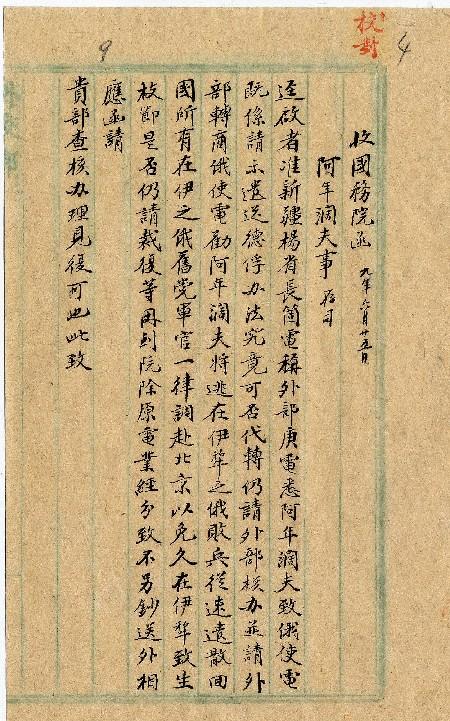 校對
4
9
收國務院函 九年六月廿五日
阿年闊夫事
逕啟者准新疆楊省長箇電稱外部庚電悉阿年闊夫致俄使電
既係請示遣送德俘办法究竟可否代轉仍請外部核办並請外
部轉商俄使電勸阿年闊夫將逃在伊犂之俄敗兵從速遣散回
國所有在伊之俄舊党軍官一律調赴北京以免久在伊犂致生
枝節是否仍請裁復等因到院除原電業經分致不另鈔送外相
應函請
貴部查核办理見復可也此致